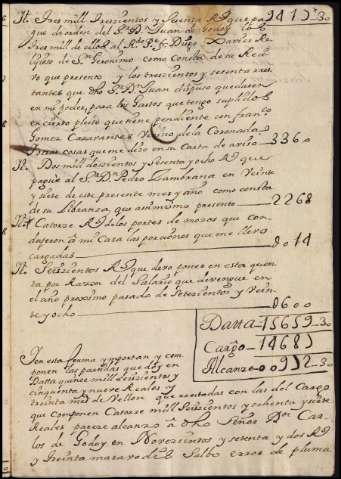 9415"30
Yt. Tres mill Trescientos y Setenta Rs. que pa
gue de orden del Sr. Dn. Juan de
tres mill de ellos al R. P. Fr. Diego
de Sn. Geronimo como consta de su Reci
vo que presento y los trescientos y setenta res
tantes que dho Sr. Dn. Juan dispuso quedasen
en mi poder para los Gastos que tengo suplidos
en cierto pleito que tiene pendiente con Franco
Gomez Vezino de la Coronada
y otras cosas que me deve en su Carta de aviso 3360
Yt. Dos mill doscientos y Sesenta y ocho Rs. que
pague al Sr. Dn. Pedro Zambrana en Veinte
y siete de este presente mes y año como consta
de su libranza que asimismo presento 2268
Yt. Catorze Rs. de los portes de mozos que con
dujeron a mi Casa las porciones que me llevo
cargadas 0014
Yt. Seiscientos Rs. que devo poner en esta quen
ta por Razon del Salario que devengue en
el año proximo pasado de Setecientos y Vein
te y ocho 0600
Datta 15659"30
Cargo 14687
Alcanze 00972"30
En esta forma ymportan y com
ponen las partidas que doy en
Datta quinze mill seiscientos y
cinquenta y nueve Reales y
treinta mrs. de Vellon que cotejadas con las del Cargo
que componen Catorze mill Seiscientos y ochenta y siete
Reales pareze alcanzo a dho Señor Dn. Car
los de Godoy en Novecientos y setenta y dos Rs.
y treinta maravedis Salbo error de pluma